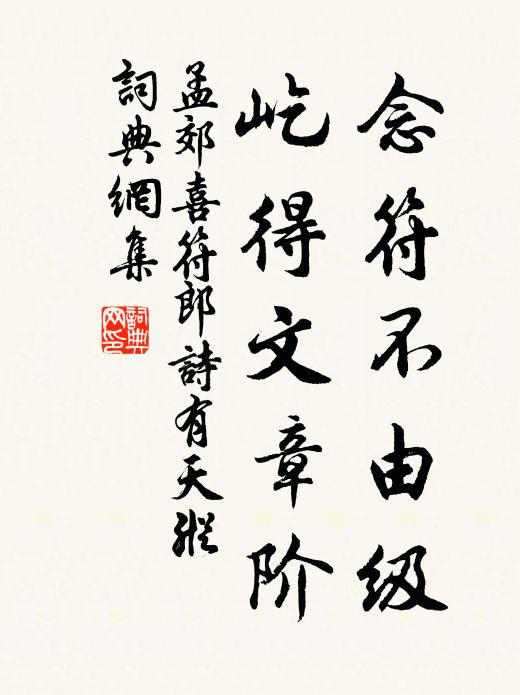 念符不由级
屹得文章阶
孟郊喜符郎詩有天縱
詞典網集
詞典网印